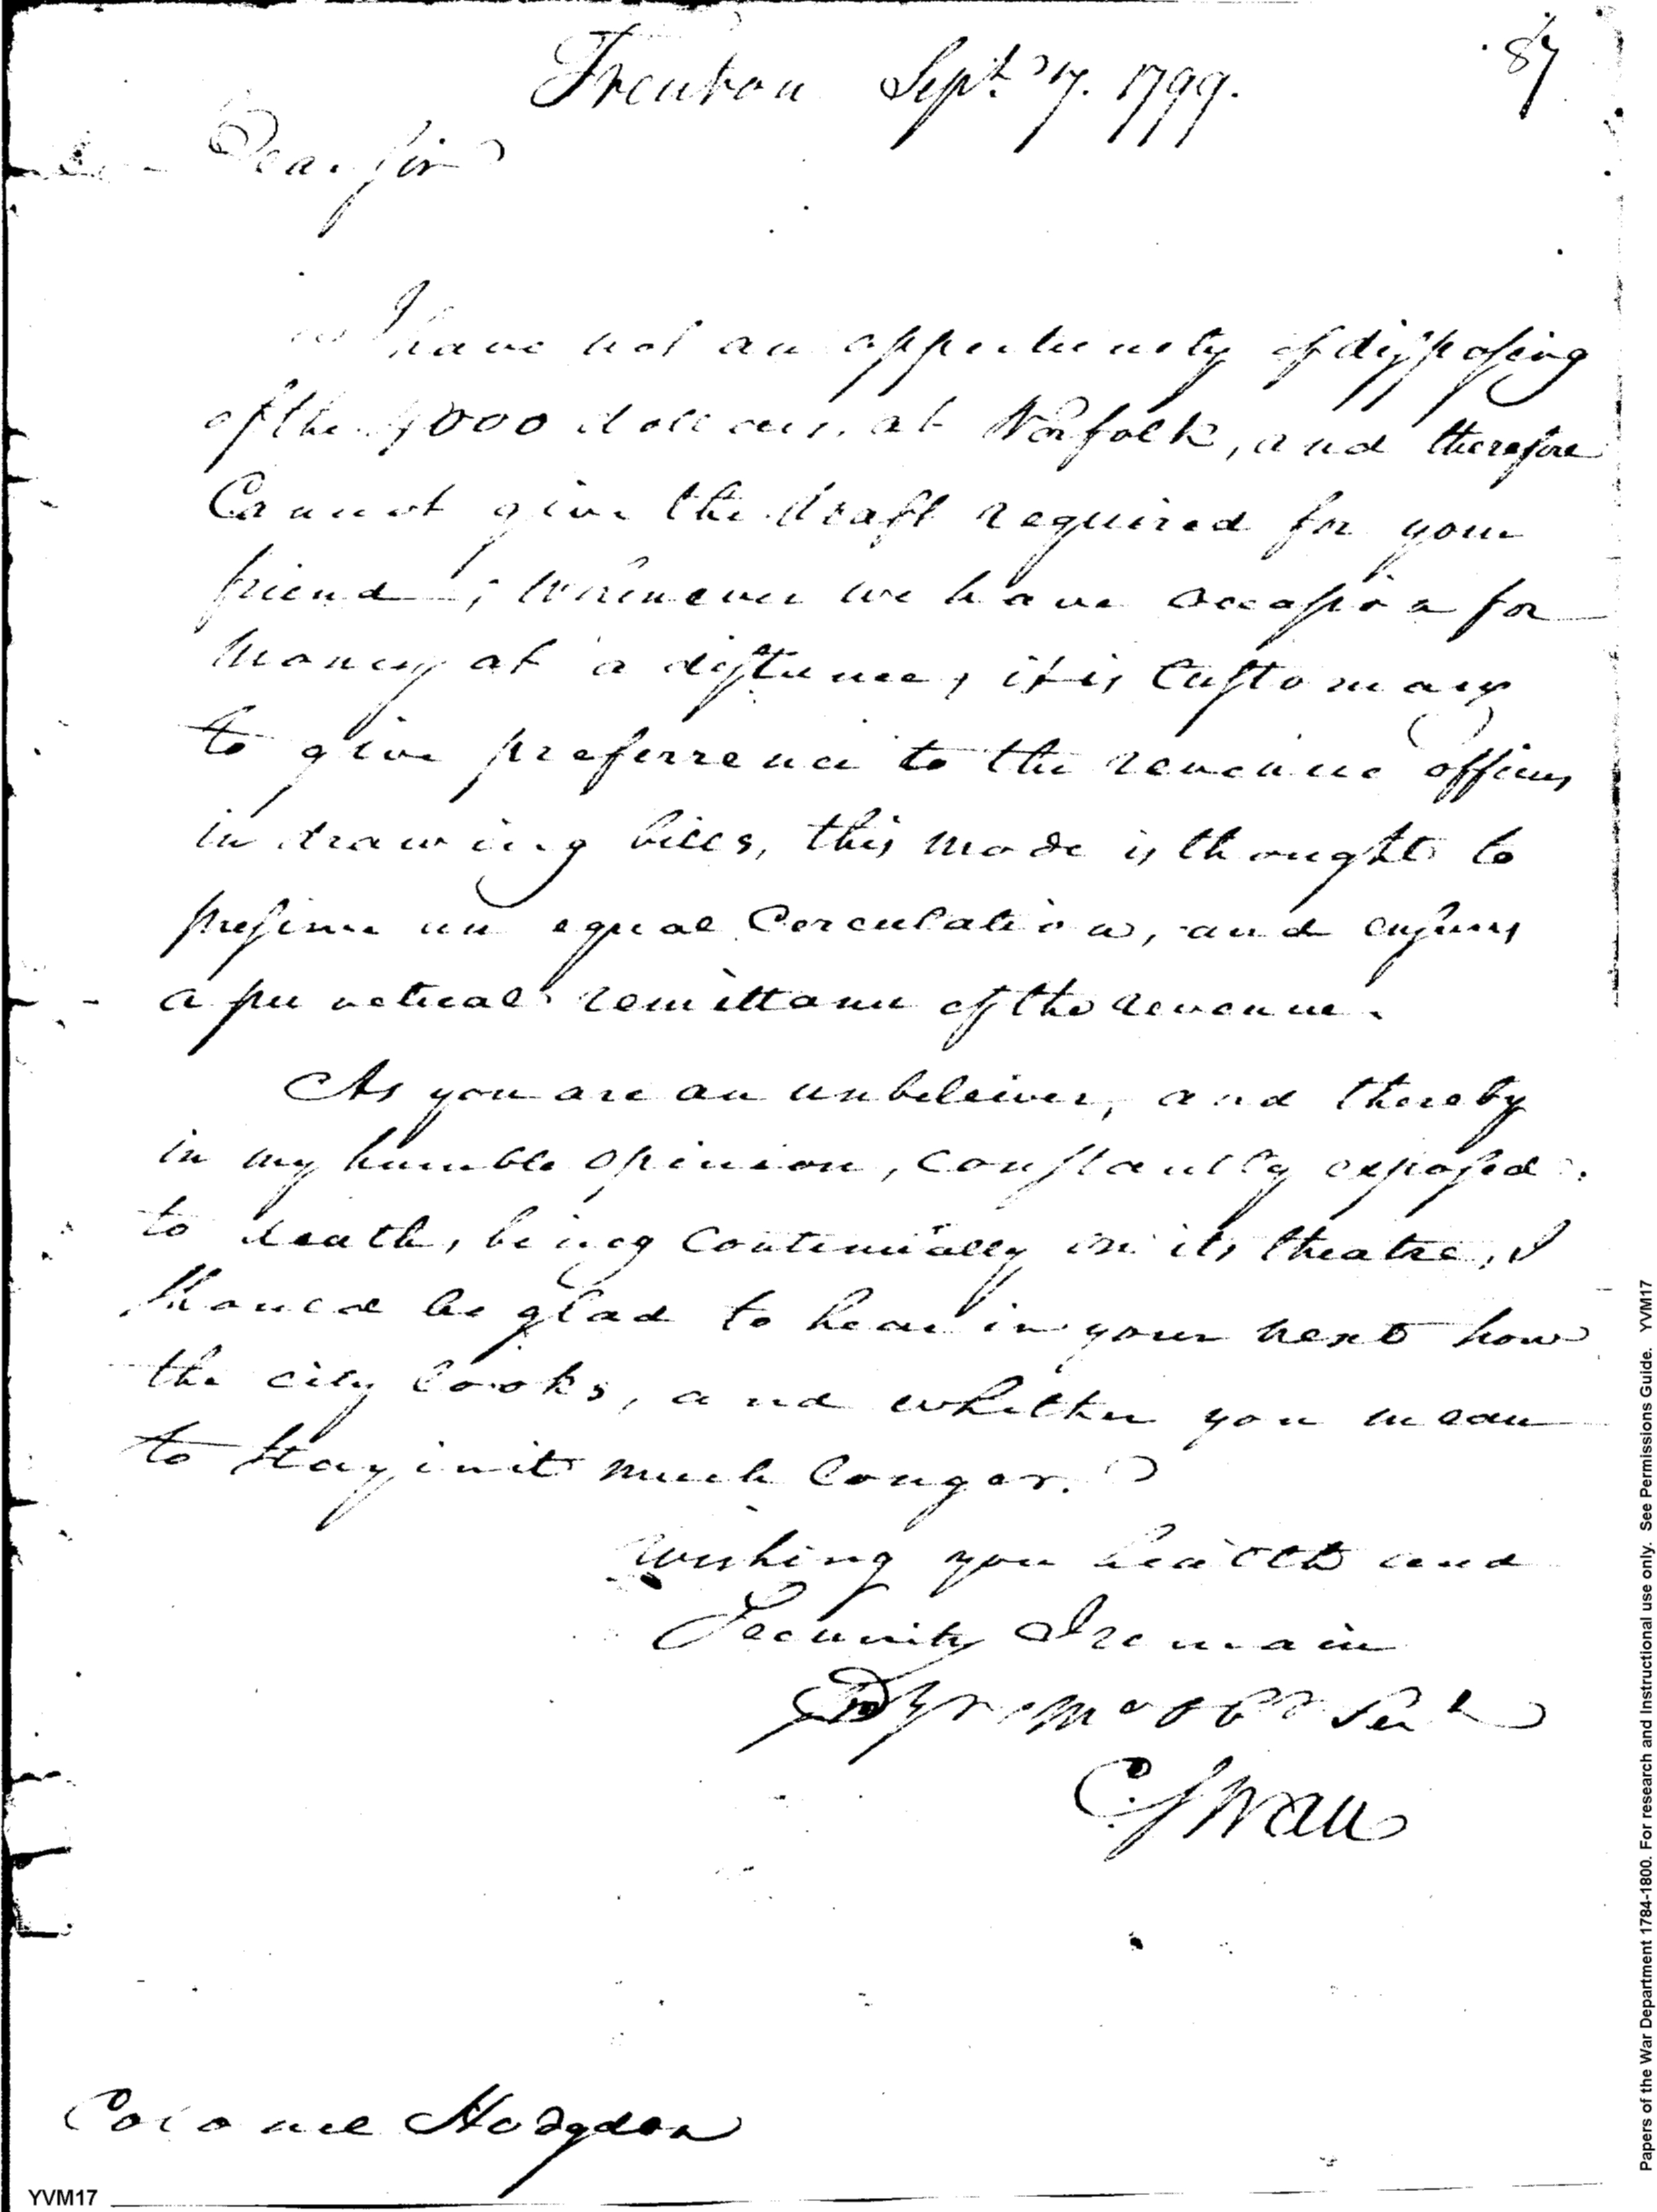 87
Trenton Sept. 17. 1799.
Dear Sir
I have not an oppertunety of dissposing
of the 4000 dollars at Norfolk, and therefore
Cannot give the draft required for your
friend; Whenever we have occasion for
Money at a distance, it is Customary
to give preferrence to the revenue officers
in drawing bills, this mode is thought to
preserve an equal Cerculation, and ensures
a punctual remittance of the revenue.
As you are an unbeleiver, and thereby
in my humble opinion, constantly exposed
to death, being Continually on its theatre, I
should be glad to hear in your next how
the city looks, and whether you mean
to stay in it much longer.
Wishing you health and
Security I remain
Dr Sr Mo Ob Sert
C Swan
Colonel Hodgdon
YVM17
Papers of the War Department 1784-1800. For research and Instructional use only. See Permissions Guide. YVM17